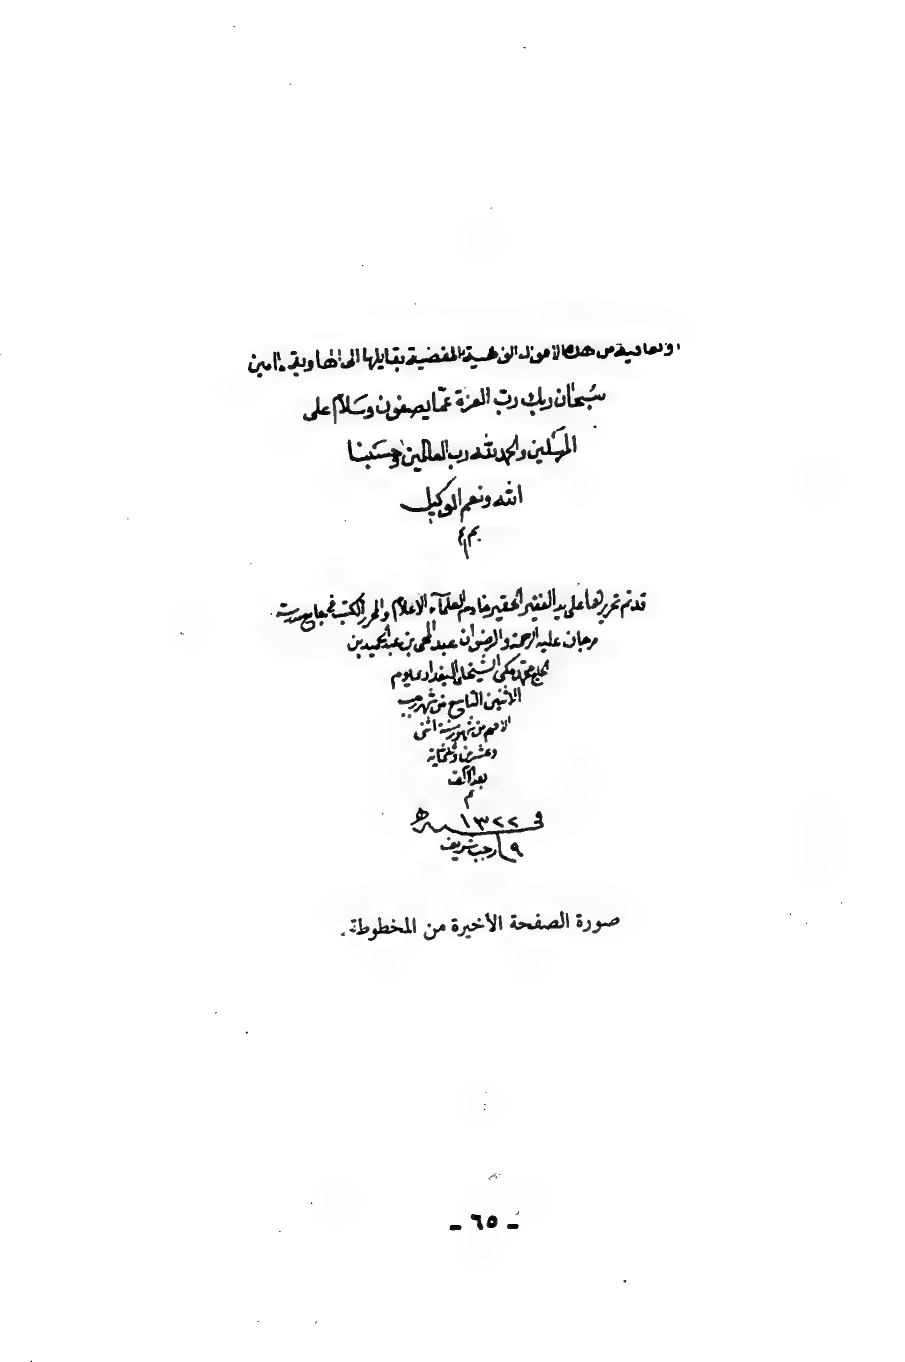 والعافية من هذه الأموال الغير المفضية بقايلها الى الهاوية امين
سبحان ربك رب العزة عما يصفون وسلام على
المرسلين والحمد لله رب العالمين وحسبنا
الله ونعم الوكيل
تم
قد تم تحريرها على يد الفقير الحقير خادم العلماء الاعلام والمحرر الكتب في جامع مدرسة
مرجان عليه الرحمة والرضوان عبد المحي بن عبد الحميد بن
الحاج محمد مكي الشيخلي البغدادي يوم
الاثنين التاسع من شهر رجب
الاصم من شهور سنة اثنى
وعشرين وثلثماية
بعد الالف
م
في ١٣٢٢ سنه هـ
٩ رجب شريف
صورة الصفحة الأخيرة من المخطوطة.
ـ ٦٥ ـ